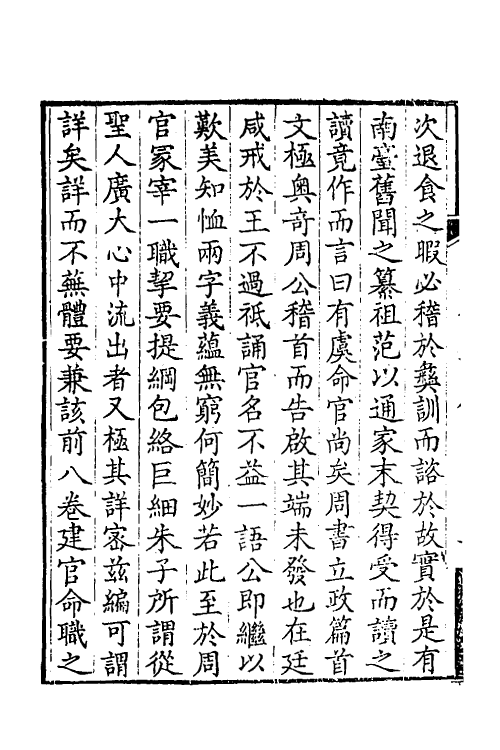 次退食之暇必稽於彝訓而諮於故實於是有
南臺舊聞之纂祖范以通家末契得受而讀之
讀竟作而言曰有虞命官尚矣周書立政篇首
文極奥奇周公稽首而告啟其端未發也在廷
咸戒於王不過祗誦官名不益一語公即繼以
歎美知恤兩字義蘊無窮何簡妙若此至於周
官冡宰一職挈要提綱包絡巨細朱子所謂從
聖人廣大心中流出者又極其詳宻兹編可謂
詳矣詳而不蕪體要兼該前八卷建官命職之